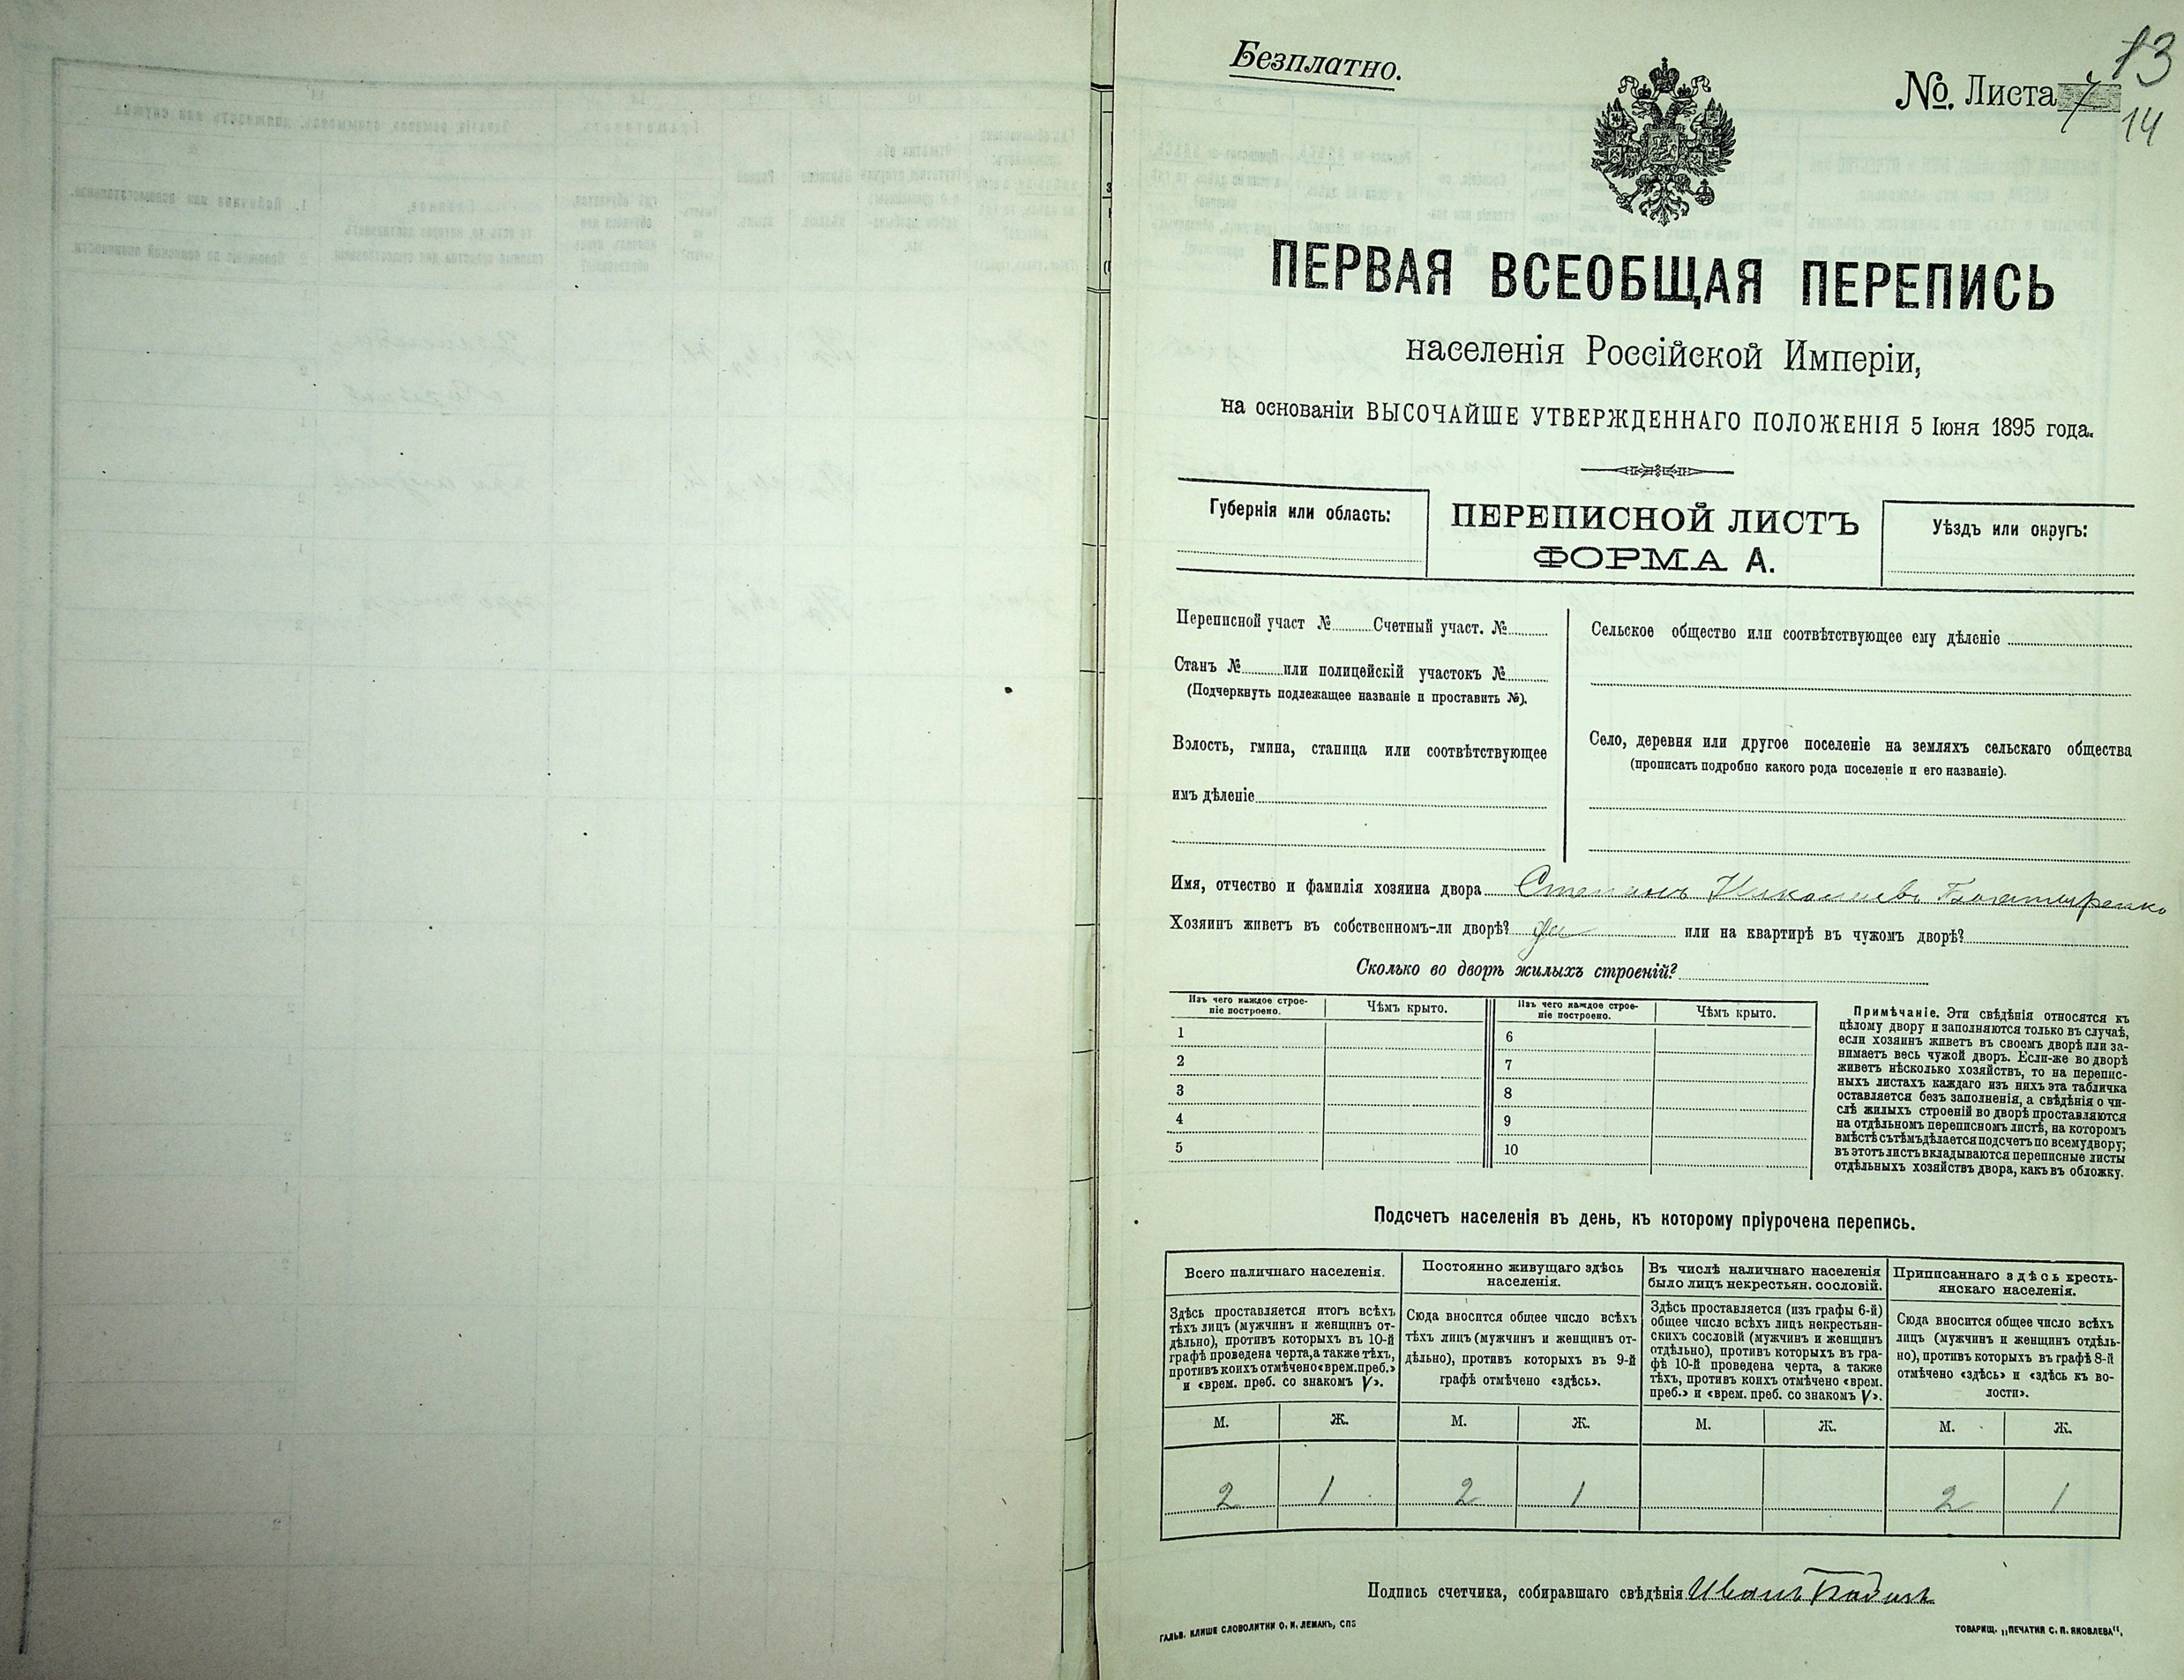 Безплатно.
№. Листа 7
13
14
ПЕРВАЯ ВСЕОБЩАЯ ПЕРЕПИСЬ
населенія Россійской Имперіи,
на основаніи ВЫСОЧАЙШЕ УТВЕРЖДЕННАГО ПОЛОЖЕНІЯ 5 Іюня 1895 года.
Губернія или область:
ПЕРЕПИСНОЙ ЛИСТЪ
ФОРМА А.
Уѣздъ или округъ:
Переписной участ № Счетный участ. №
Станъ № или полицейскій участокъ №
(Подчеркнуть подлежащее названіе и проставить №).
Волость, гмина, станица или соотвѣтствующее
имъ дѣленіе
Сельское общество или соотвѣтствующее ему дѣленіе
Село, деревня или другое поселеніе на земляхъ сельскаго общества
(прописать подробно какого рода поселеніе и его названіе).
Имя, отчество и фамилія хозяина двора Степанъ Николаевъ Богатыренко
Хозяинъ живетъ въ собственномъ-ли дворѣ? да или на квартирѣ въ чужомъ дворѣ?
Сколько во дворѣ жилыхъ строеній?
Изъ чего каждое строе-
ніе построено.
Чѣмъ крыто.
Изъ чего каждое строе-
ніе построено.
Чѣмъ крыто.
1
2
3
4
5
6
7
8
9
10
Примѣчаніе. Эти свѣдѣнія относятся къ
цѣлому двору и заполняются только въ случаѣ,
если хозяинъ живетъ въ своемъ дворѣ или за-
нимаетъ весь чужой дворъ. Если-же во дворѣ
живетъ нѣсколько хозяйствъ, то на перепис-
ныхъ листахъ каждаго изъ нихъ эта табличка
оставляется безъ заполненія, а свѣдѣнія о чи-
слѣ жилыхъ строеній во дворѣ проставляются
на отдѣльномъ переписномъ листѣ, на которомъ
вмѣстѣ съ тѣмъ дѣлается подсчетъ по всему двору;
въ этотъ листъ вкладываются переписные листы
отдѣльныхъ хозяйствъ двора, какъ въ обложку.
Подсчетъ населенія въ день, къ которому пріурочена перепись.
Всего наличнаго населенія.
Здѣсь проставляется итогъ всѣхъ
тѣхъ лицъ (мужчинъ и женщинъ от-
дѣльно), противъ которыхъ въ 10-й
графѣ проведена черта, а также тѣхъ,
противъ коихъ отмѣчено «врем. преб.»
и «врем. преб. со знакомъ V».
Постоянно живущаго здѣсь
населенія.
Сюда вносится общее число всѣхъ
тѣхъ лицъ (мужчинъ и женщинъ от-
дѣльно), противъ которыхъ въ 9-й
графѣ отмѣчено «здѣсь».
Въ числѣ наличнаго населенія
было лицъ некрестьян. сословій.
Здѣсь проставляется (изъ графы 6-й)
общее число всѣхъ лицъ некрестьян-
скихъ сословій (мужчинъ и женщинъ
отдѣльно), противъ которыхъ въ гра-
фѣ 10-й проведена черта, а также
тѣхъ, противъ коихъ отмѣчено «врем.
преб.» и «врем. преб. со знакомъ V».
Приписаннаго здѣсь кресть-
янскаго населенія.
Сюда вносится общее число всѣхъ
лицъ (мужчинъ и женщинъ отдѣль-
но), противъ которыхъ въ графѣ 8-й
отмѣчено «здѣсь» и «здѣсь къ во-
лости».
М. Ж. М. Ж. М. Ж. М. Ж.
2 1 2 1 2 1
Подпись счетчика, собиравшаго свѣдѣнія Иванъ
ГАЛЬВ. КЛИШЕ СЛОВОЛИТНИ О. И. ЛЕМАНЪ, СПБ
ТОВАРИЩ. „ПЕЧАТНЯ С. П. ЯКОВЛЕВА“.